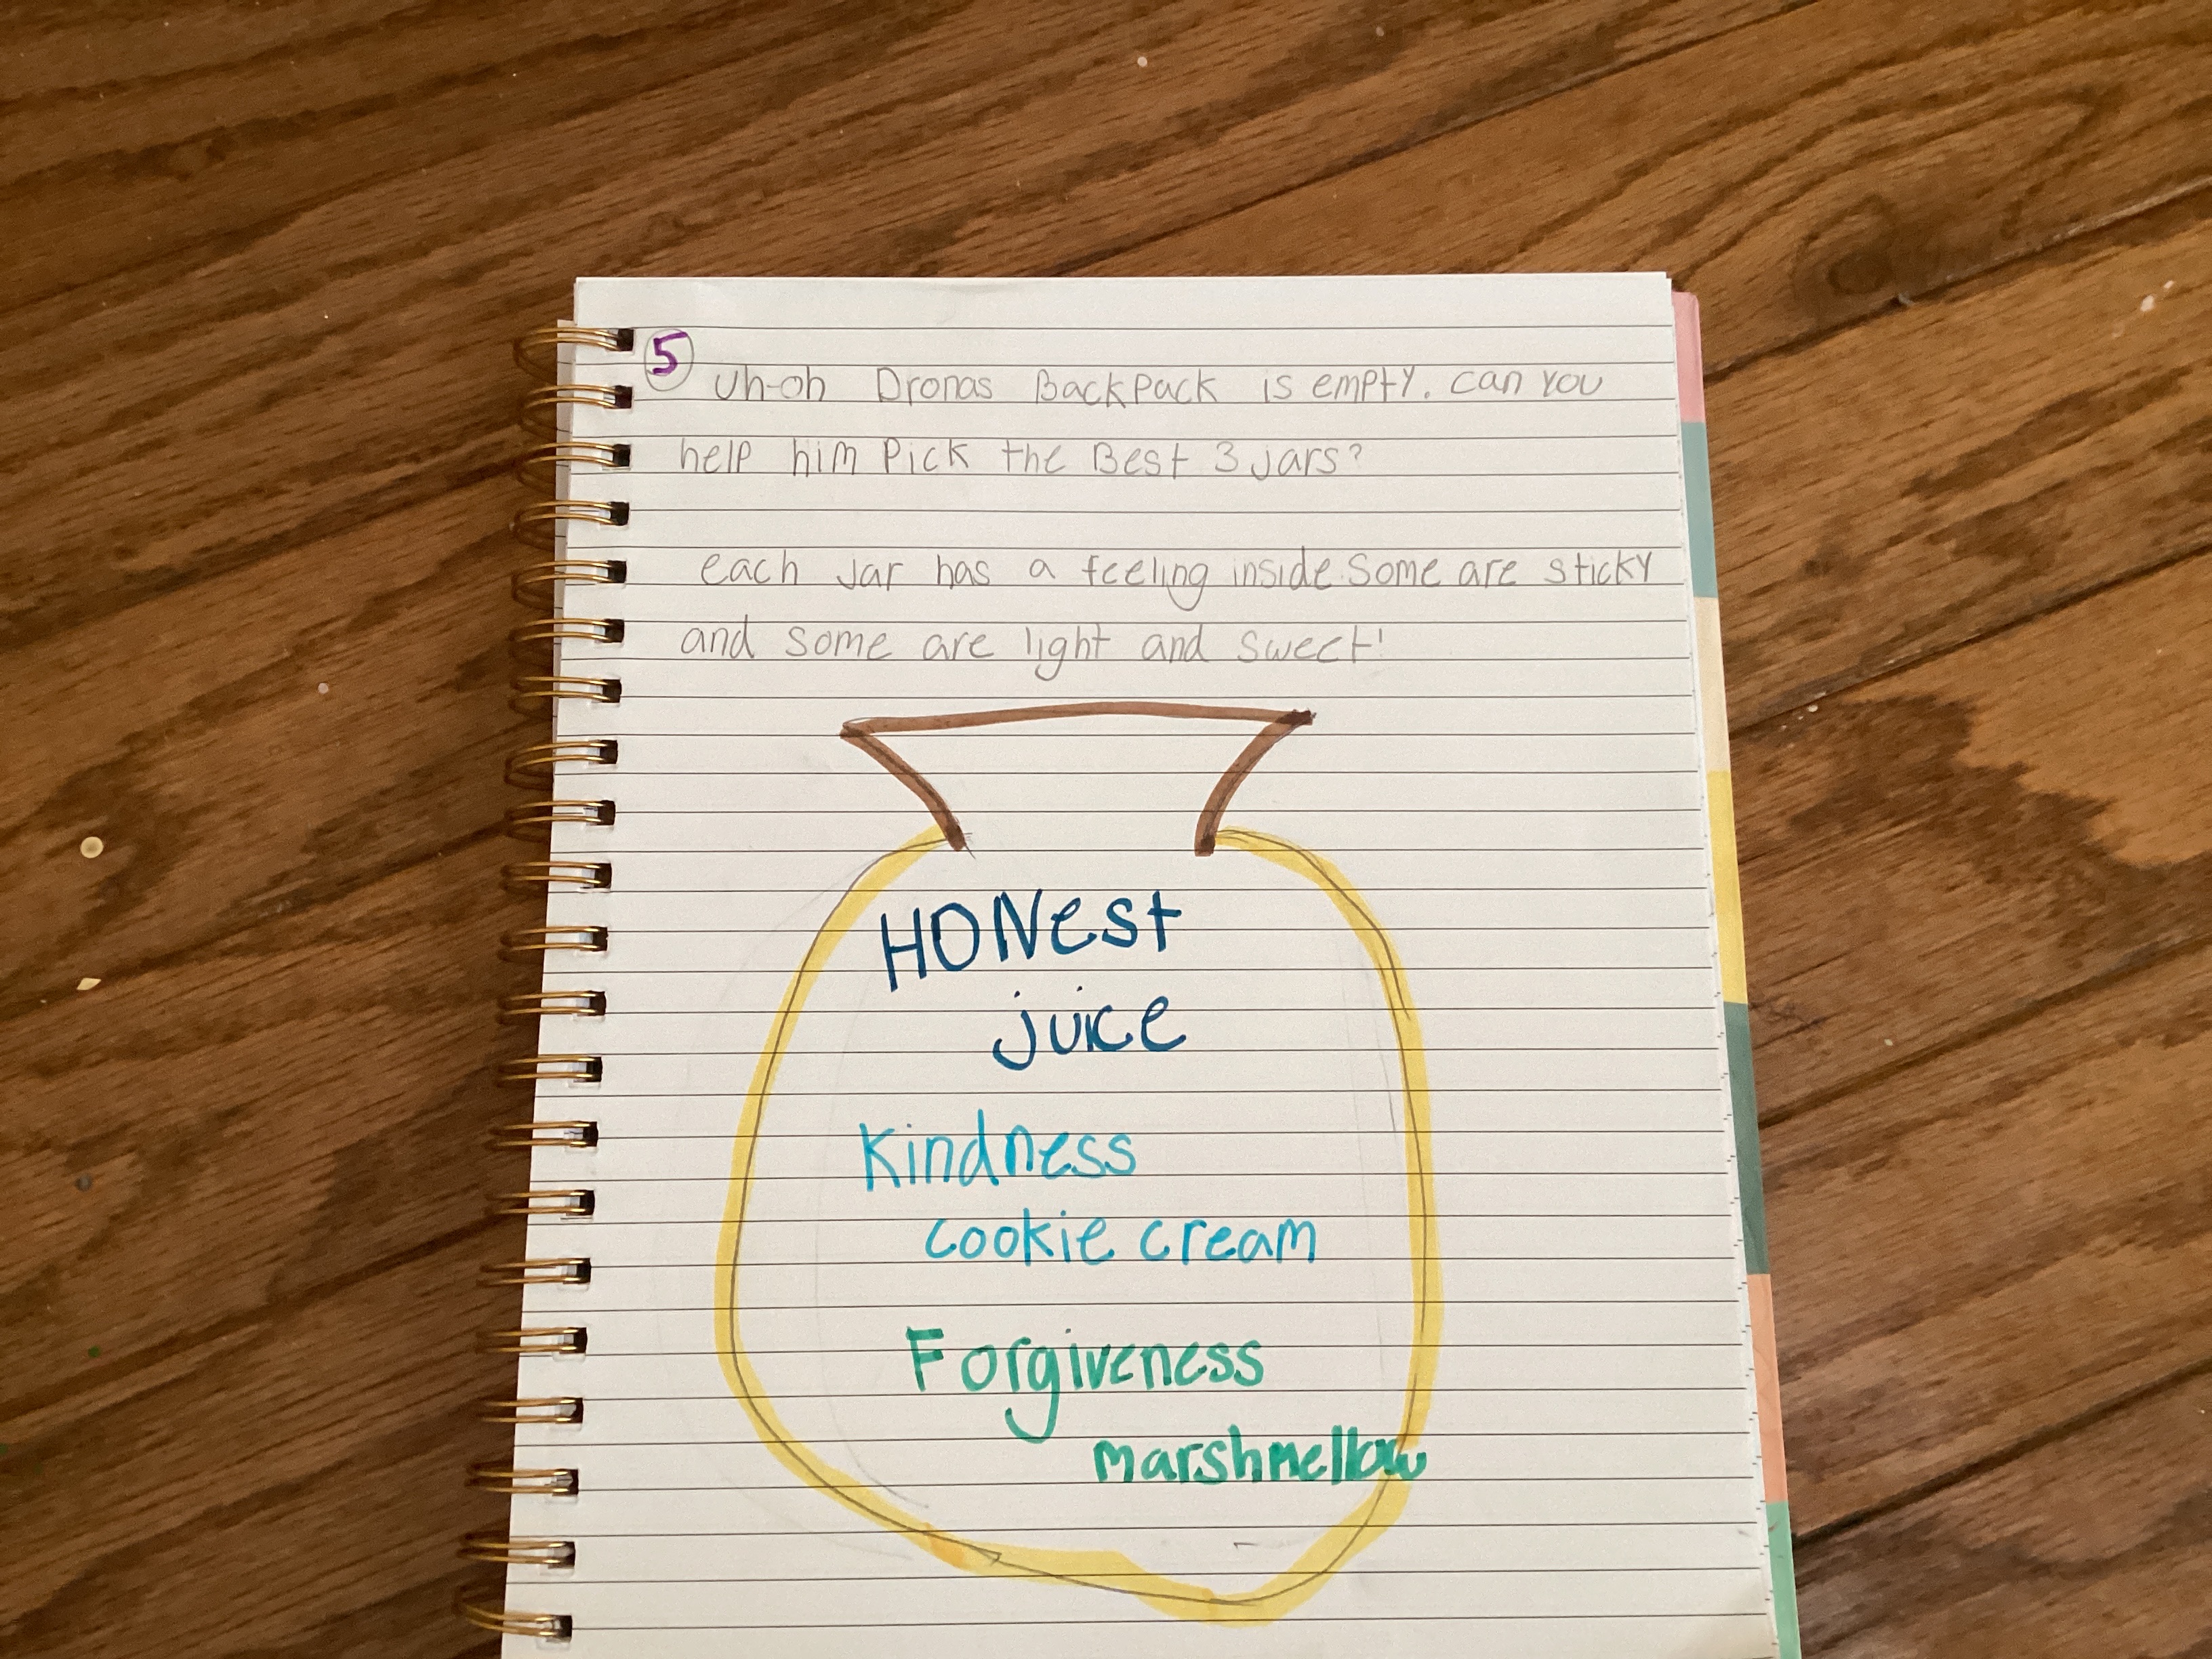 5
Uh-oh Dronas Backpack is empty. can you
help him Pick the Best 3 jars?
each jar has a feeling inside. Some are sticky
and some are light and sweet!
HONest
juice
Kindness
cookie cream
Forgiveness
marshmellow